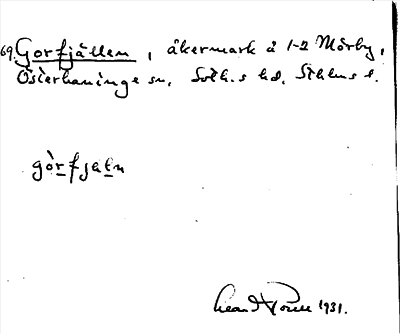 69. Gorfjällen, åkermark å 1-2 Mörby,
Österhaninge sn. Soth.s hd. Sthlms l.
gòrfjaɫn
1931.